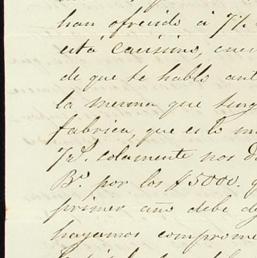 han ofrecido á 7½
está
de que te hablo ant
la misma que teng
fabrica, que es lo m
7½. solamente nos d
Bs. por los $5000. q
primer año debe d
hayamos comprome